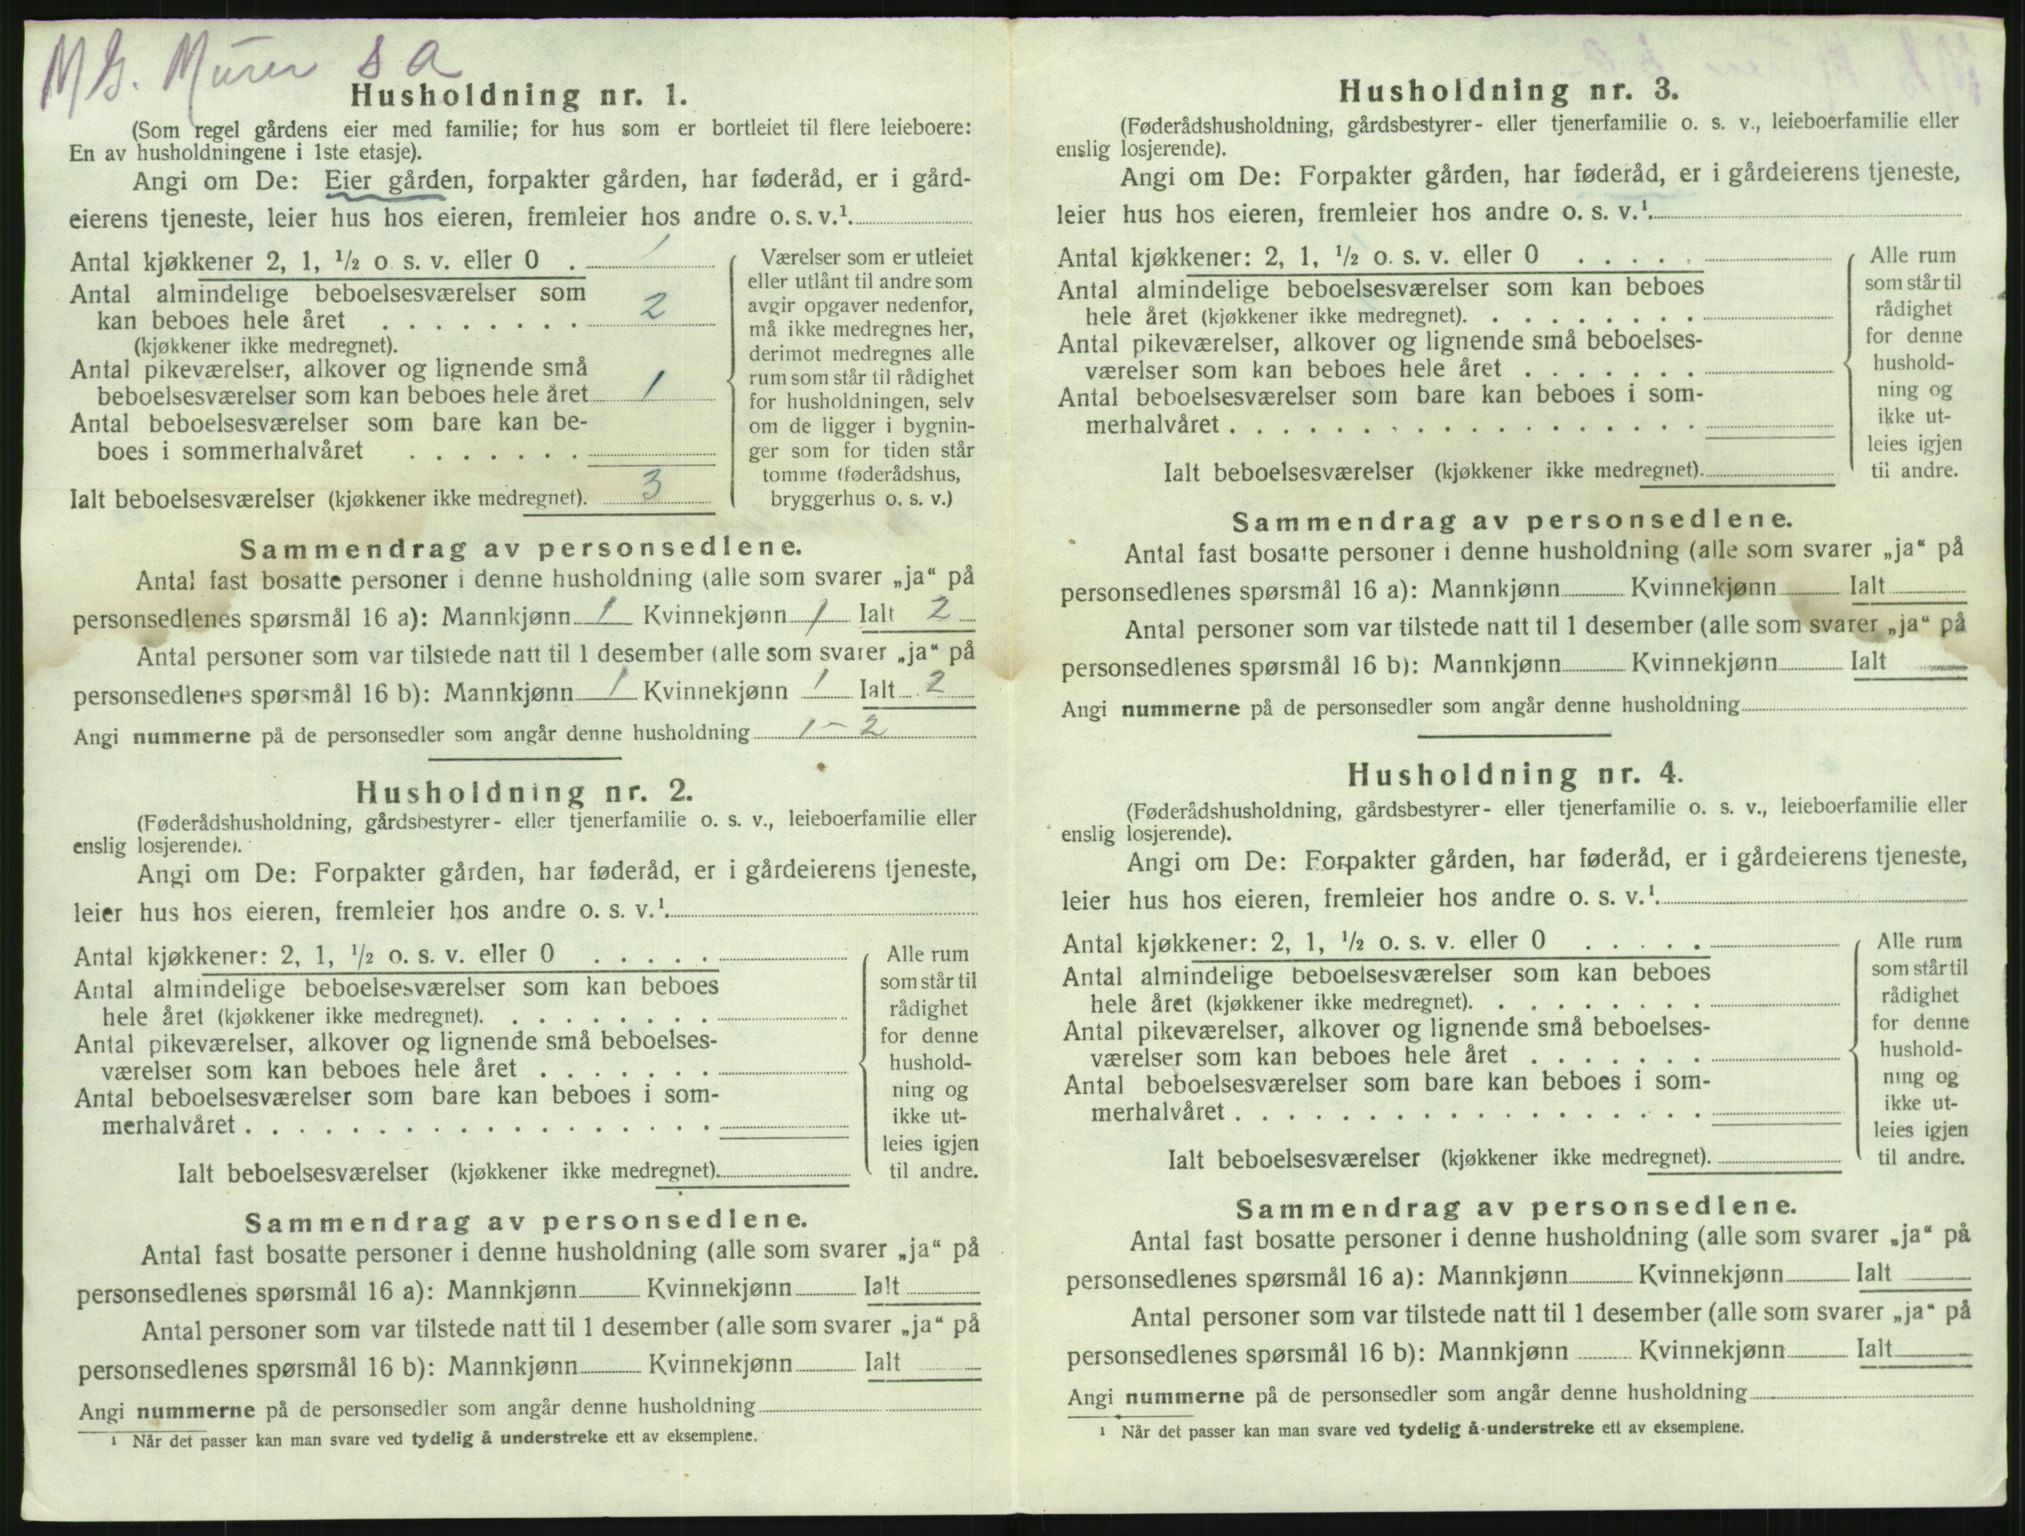 M G. Murer s a
Husholdning nr. 1.
(Som regel gårdens eier med familie; for hus som er bortleiet til flere leieboere:
En av husholdningene i 1ste etasje).
Angi om De: Eier gården, forpakter gården, har føderåd, er i gård-
eierens tjeneste, leier hus hos eieren, fremleier hos andre o. s. v.¹.
Antal kjøkkener 2, 1, ½ o s. v. eller 0 . 1
Antal almindelige beboelsesværelser som
kan beboes hele året . . . . . . . . 2
(kjøkkener ikke medregnet).
Antal pikeværelser, alkover og lignende små
beboelsesværelser som kan beboes hele året 1
Antal beboelsesværelser som bare kan be-
boes i sommerhalvåret . . . . . . .
Ialt beboelsesværelser (kjøkkener ikke medregnet). 3
Værelser som er utleiet
eller utlånt til andre som
avgir opgaver nedenfor,
må ikke medregnes her,
derimot medregnes alle
rum som står til rådighet
for husholdningen, selv
om de ligger i bygnin-
ger som for tiden står
tomme (føderådshus,
bryggerhus o. s. v.)
Sammendrag av personsedlene.
Antal fast bosatte personer i denne husholdning (alle som svarer „ja“ på
personsedlenes spørsmål 16 a): Mannkjønn 1 Kvinnekjønn 1 Ialt 2
Antal personer som var tilstede natt til 1 desember (alle som svarer „ja“ på
personsedlenes spørsmål 16 b): Mannkjønn 1 Kvinnekjønn 1 Ialt 2
Angi nummerne på de personsedler som angår denne husholdning 1-2
Husholdning nr. 2.
(Føderådshusholdning, gårdsbestyrer- eller tjenerfamilie o. s. v., leieboerfamilie eller
enslig losjerende).
Angi om De: Forpakter gården, har føderåd, er i gårdeierens tjeneste,
leier hus hos eieren, fremleier hos andre o. s. v.¹.
Antal kjøkkener: 2, 1, ½ o. s. v. eller 0 . . . . .
Antal almindelige beboelsesværelser som kan beboes
hele året (kjøkkener ikke medregnet). . . . . . . . .
Antal pikeværelser, alkover og lignende små beboelses-
værelser som kan beboes hele året . . . . . . .
Antal beboelsesværelser som bare kan beboes i som-
merhalvåret . . . . . . . . . . . . . . . . . .
Ialt beboelsesværelser (kjøkkener ikke medregnet).
Alle rum
som står til
rådighet
for denne
hushold-
ning og
ikke ut-
leies igjen
til andre.
Sammendrag av personsedlene.
Antal fast bosatte personer i denne husholdning (alle som svarer „ja“ på
personsedlenes spørsmål 16 a): Mannkjønn Kvinnekjønn Ialt
Antal personer som var tilstede natt til 1 desember (alle som svarer „ja“ på
personsedlenes spørsmål 16 b): Mannkjønn Kvinnekjønn Ialt
Angi nummerne på de personsedler som angår denne husholdning
¹ Når det passer kan man svare ved tydelig å understreke ett av eksemplene.
Husholdning nr. 3.
(Føderådshusholdning, gårdsbestyrer- eller tjenerfamilie o. s. v., leieboerfamilie eller
enslig losjerende).
Angi om De: Forpakter gården, har føderåd, er i gårdeierens tjeneste,
leier hus hos eieren, fremleier hos andre o. s. v.¹.
Antal kjøkkener: 2, 1, ½ o. s. v. eller 0 . . . . .
Antal almindelige beboelsesværelser som kan beboes
hele året (kjøkkener ikke medregnet). . . . . . . . .
Antal pikeværelser, alkover og lignende små beboelses-
værelser som kan beboes hele året . . . . . . .
Antal beboelsesværelser som bare kan beboes i som-
merhalvåret . . . . . . . . . . . . . . . . . .
Ialt beboelsesværelser (kjøkkener ikke medregnet).
Alle rum
som står til
rådighet
for denne
hushold-
ning og
ikke ut-
leies igjen
til andre.
Sammendrag av personsedlene.
Antal fast bosatte personer i denne husholdning (alle som svarer „ja“ på
personsedlenes spørsmål 16 a): Mannkjønn Kvinnekjønn Ialt
Antal personer som var tilstede natt til 1 desember (alle som svarer „ja“ på
personsedlenes spørsmål 16 b): Mannkjønn Kvinnekjønn Ialt
Angi nummerne på de personsedler som angår denne husholdning
Husholdning nr. 4.
(Føderådshusholdning, gårdsbestyrer- eller tjenerfamilie o. s. v., leieboerfamilie eller
enslig losjerende).
Angi om De: Forpakter gården, har føderåd, er i gårdeierens tjeneste,
leier hus hos eieren, fremleier hos andre o. s. v.¹.
Antal kjøkkener: 2, 1, ½ o. s. v. eller 0 . . . . .
Antal almindelige beboelsesværelser som kan beboes
hele året (kjøkkener ikke medregnet). . . . . . . . .
Antal pikeværelser, alkover og lignende små beboelses-
værelser som kan beboes hele året . . . . . . .
Antal beboelsesværelser som bare kan beboes i som-
merhalvåret . . . . . . . . . . . . . . . . . .
Ialt beboelsesværelser (kjøkkener ikke medregnet).
Alle rum
som står til
rådighet
for denne
hushold-
ning og
ikke ut-
leies igjen
til andre.
Sammendrag av personsedlene.
Antal fast bosatte personer i denne husholdning (alle som svarer „ja“ på
personsedlenes spørsmål 16 a): Mannkjønn Kvinnekjønn Ialt
Antal personer som var tilstede natt til 1 desember (alle som svarer „ja“ på
personsedlenes spørsmål 16 b): Mannkjønn Kvinnekjønn Ialt
Angi nummerne på de personsedler som angår denne husholdning
¹ Når det passer kan man svare ved tydelig å understreke ett av eksemplene.